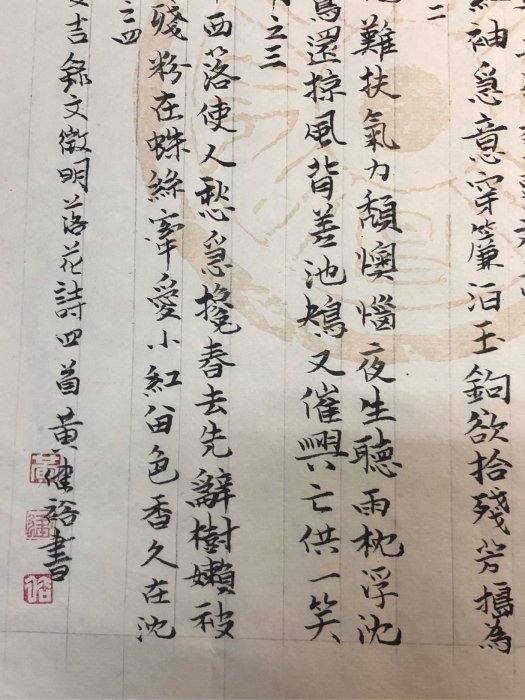 紅袖急意穿簾泊玉鉤欲拾殘芳搗為
二
難扶氣力頹懊惱夜生聽雨枕浮沈
鶯還掠風背差池鳦又催興亡供一笑
之三
西落使人愁急攙春去先辭樹嬾被
殘粉在蛛絲牽愛小紅留色香久在沈
之四
吉錄文徵明落花詩四首黃健裕書
黃
健
裕